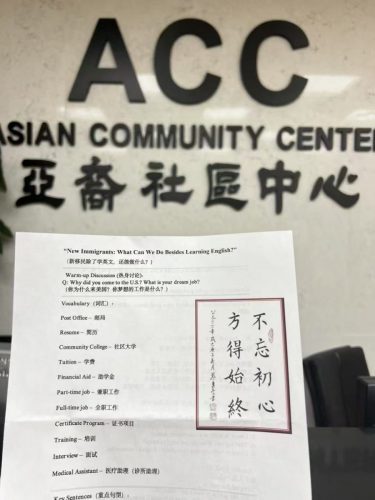 ACC
ASIAN COMMUNITY CENTER
亞裔社區中心
“New Immigrants: What Can We Do Besides Learning English?”
(新移民除了学英文，还能做什么？)
Warm-up Discussion (热身讨论):
Q: Why did you come to the U.S.? What is your dream job?
(你为什么来美国？你梦想的工作是什么？)
Vocabulary (词汇):
Post Office – 邮局
Resume – 简历
Community College – 社区大学
Tuition – 学费
Financial Aid – 助学金
Part-time job – 兼职工作
Full-time job – 全职工作
Certificate Program – 证书项目
Training – 培训
Interview – 面试
Medical Assistant – 医疗助理（诊所助理）
Key Sentences (重点句型):
不忘初心
方得始終